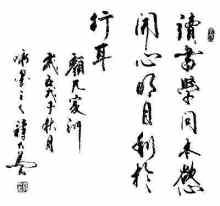 讀書學問本慾
開心明目利於
行耳
顏氏家訓
戊子秋月